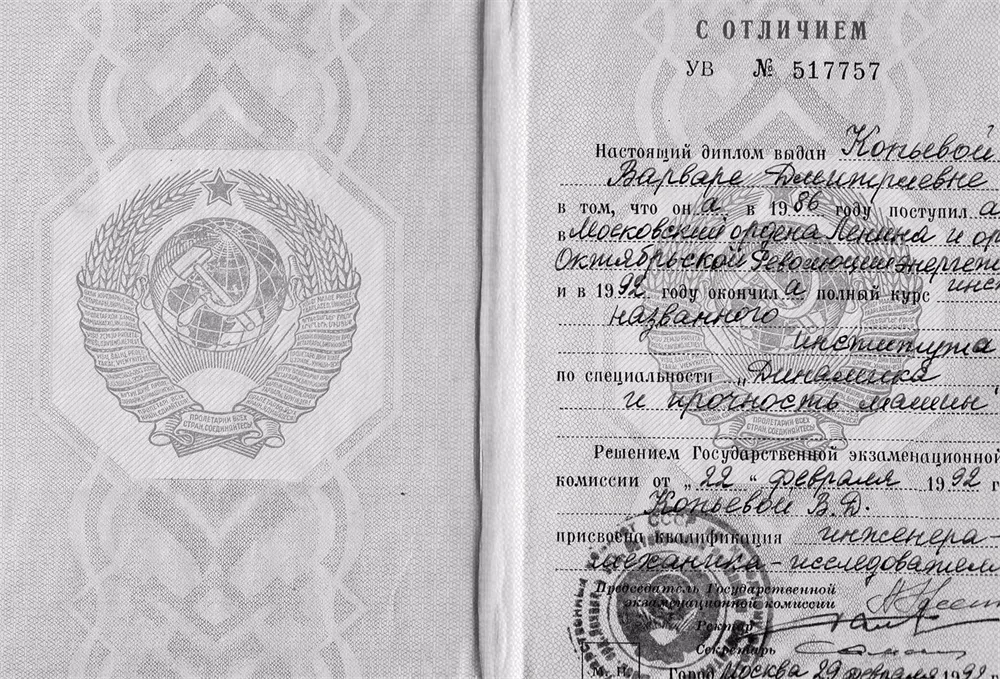 ПРОЛЕТАРИИ ВСЕХ
СТРАН, СОЕДИНЯЙТЕСЬ!
С ОТЛИЧИЕМ
УВ № 517757
Настоящий диплом выдан Копьевой
Варваре Дмитриевне
в том, что он а в 1986 году поступил а
в Московский ордена Ленина и ор
Октябрьской Революции энергети
и в 1992 году окончил а полный курс инст
названного
института
по специальности „Динамика
и прочность машин"
ПРОЛЕТАРИИ ВСЕХ
СТРАН, СОЕДИНЯЙТЕСЬ!
Решением Государственной экзаменационной
комиссии от „22" февраля 1992 г
Копьевой В.Д.
присвоена квалификация инженера-
механика-исследователя
СССР
Председатель Государственной
экзаменационной комиссии
Ректор
Секретарь
М. П. Город Москва 29 февраля 1992 г